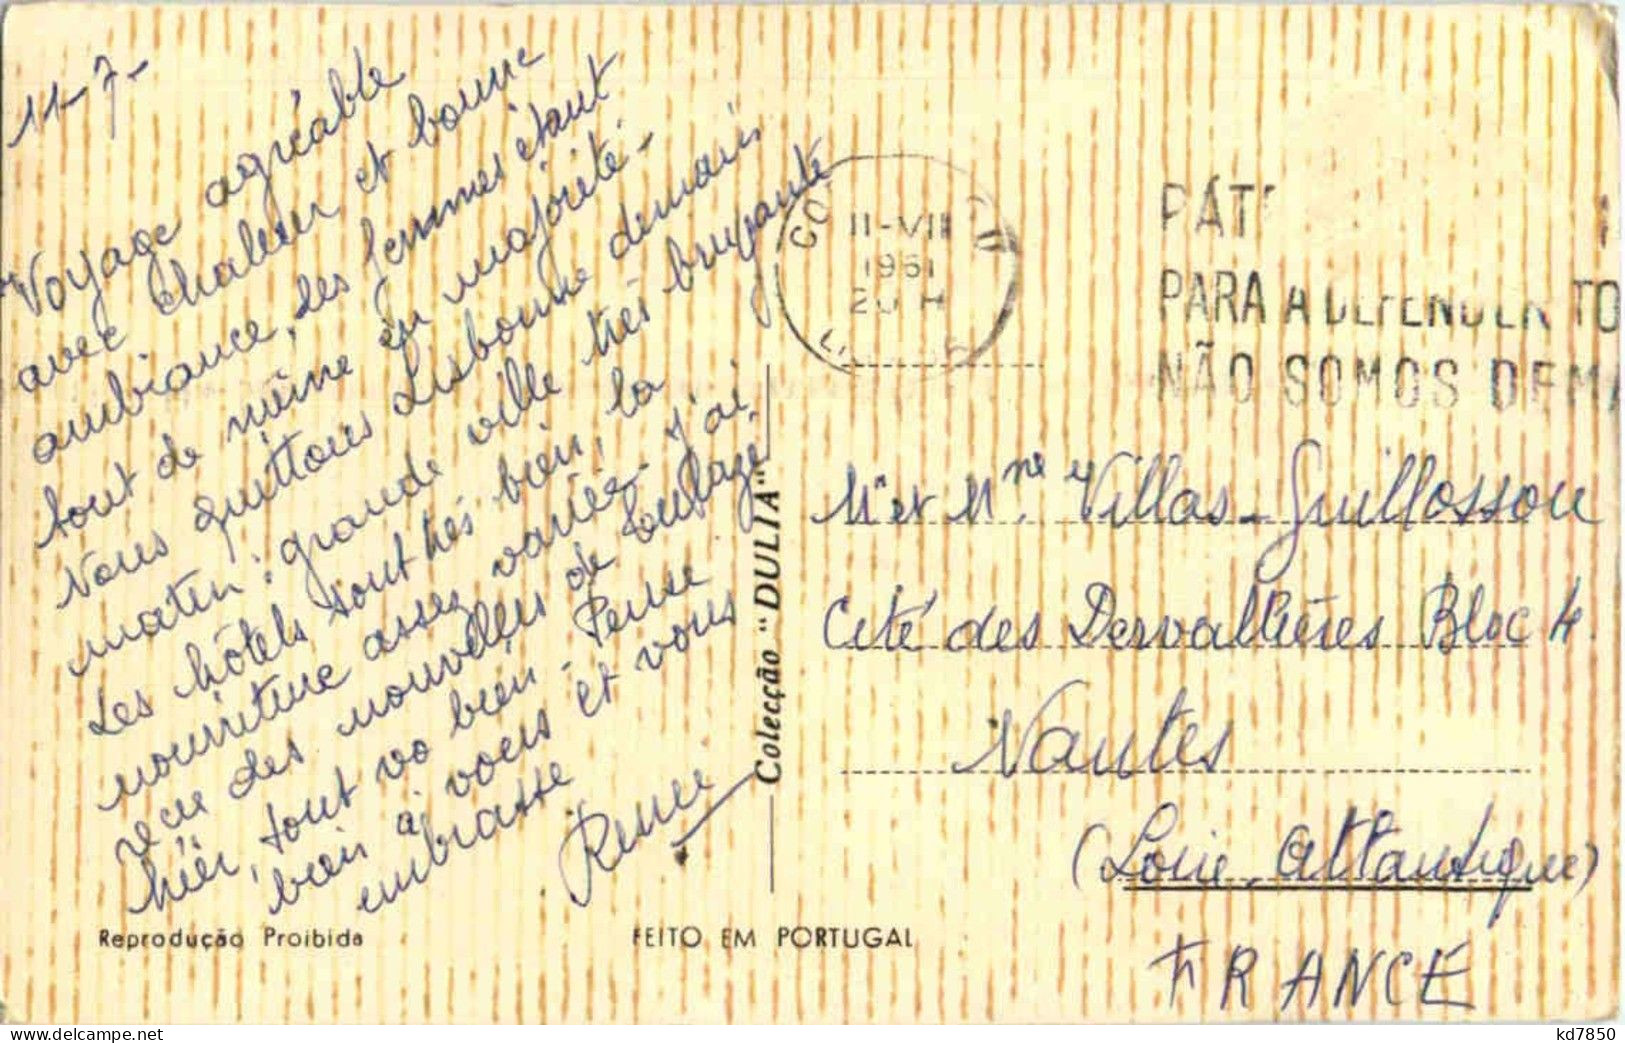 11-7-
Voyage agréable
avec chaleur et bonne
ambiance, les femmes étant
tout de même en majorité.-
Nous quittons Lisbonne demain
matin : grande ville très bruyante
Les hôtels sont très bien, la
nourriture assez variée. J'ai
reçu des nouvelles de
hier, tout va bien - Pense
bien à vous et vous
embrasse
Renée
Colecção "DULIA"
Reprodução Proibida
FEITO EM PORTUGAL
11-VII
1961
20 H
PÁT
PARA A DEFENDER TO
NÃO SOMOS DEMA
Mr et Mme Villas-Guillossou
Cité des Dervallières Bloc 4
Nantes
(Loire-Atlantique)
FRANCE
kd7850